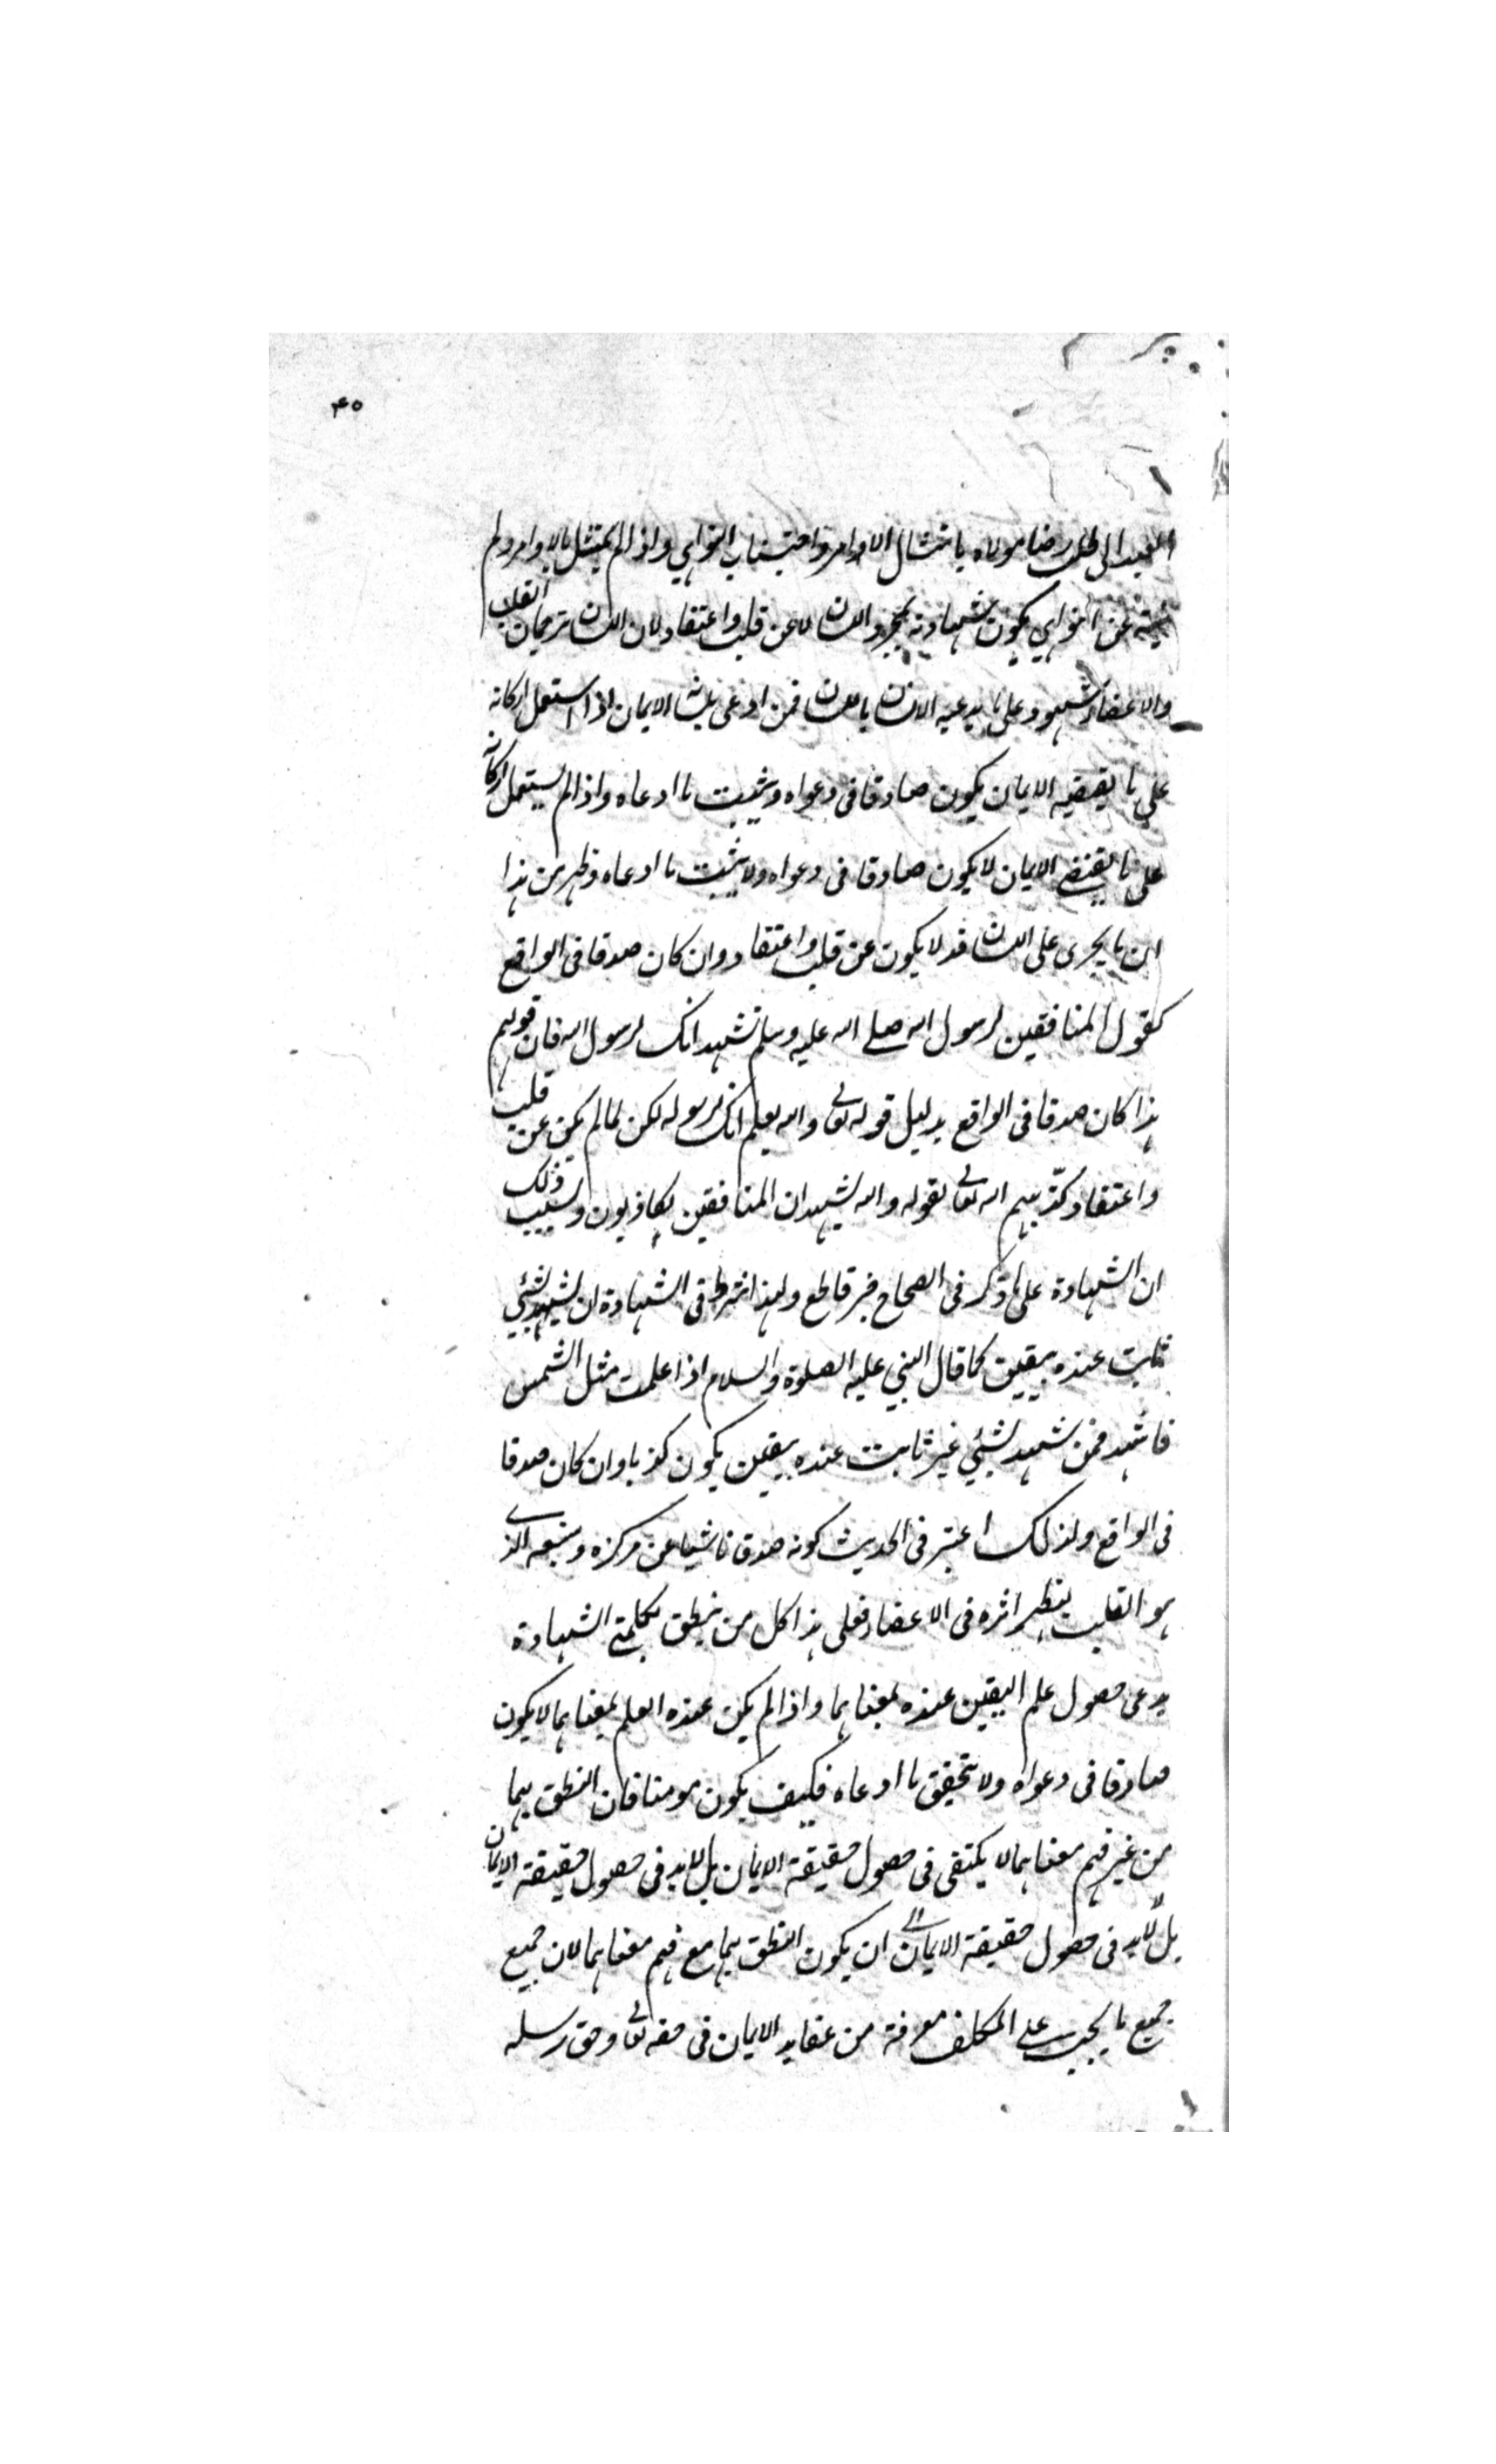 ۴۰
العبد الى طلب رضا مولاه بامتثال الاوامر واجتناب النواهي واذا لم يمتثل بالاوامر ولم
ينته عن النواهي يكون شهادته بمجرد اللسان لا عن قلب واعتقاد لان اللسان ترجمان القلب
والاعضاء شهود على ما يدعيه الانسان باللسان فمن ادعى بلسانه الايمان اذا استعمل اركانه
على ما يقتضيه الايمان يكون صادقا فى دعواه ويثبت ما ادعاه واذا لم يستعمل اركانه
على ما يقتضى الايمان لا يكون صادقا فى دعواه ولا يثبت ما ادعاه وظهر من هذا
ان ما يجرى على اللسان قد لا يكون عن قلب واعتقاد وان كان صدقا فى الواقع
كقول المنافقين لرسول الله صلى الله عليه وسلم نشهد انك لرسول الله فان قولهم
هذا كان صدقا فى الواقع بدليل قوله تعالى والله يعلم انك لرسوله لكن لما لم يكن عن قلب
واعتقاد كذّبهم الله تعالى بقوله والله يشهد ان المنافقين لكاذبون وسبب ذلك
ان الشهادة على ما ذكر فى الصحاح خبر قاطع ولهذا شرط فى الشهادة ان يشهد بشئ
ثابت عنده بيقين كما قال النبي عليه الصلوة والسلام اذا علمت مثل الشمس
فاشهد فمن شهد بشئ غير ثابت عنده بيقين يكون كذبا وان كان صدقا
فى الواقع ولذلك اعتبر فى الحديث كونه صدقا ناشيا عن مركزه ومنبعه الذى
هو القلب ليظهر اثره فى الاعضاء فعلى هذا كل من ينطق بكلمتى الشهادة
يدعى حصول علم اليقين عنده بمعناهما واذا لم يكن عنده العلم بمعناهما لا يكون
صادقا فى دعواه ولا يتحقق ما ادعاه فكيف يكون مومنا فان النطق بهما
من غير فهم معناهما لا يكتفى فى حصول حقيقة الايمان بل لابد فى حصول حقيقة الايمان
بل لابد فى حصول حقيقة الايمان ان يكون النطق بهما مع فهم معناهما لان جميع
جميع ما يجب على المكلف معرفة من عقايد الايمان فى حقه تعالى وحق رسله